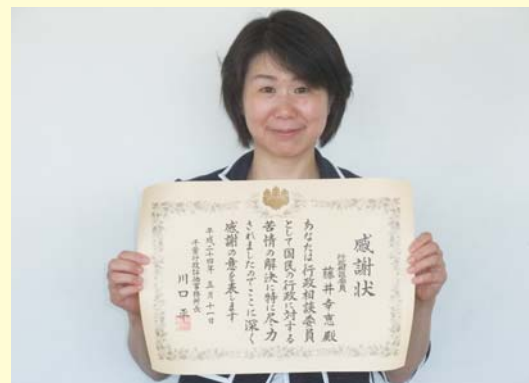 感謝状
行政相談委員
藤井幸恵殿
あなたは行政相談委員
として国民の行政に対する
苦情の解決に特に尽力
されましたのでここに深く
感謝の意を表します
平成二十四年 五月十一日
行政評価事務所長
川口